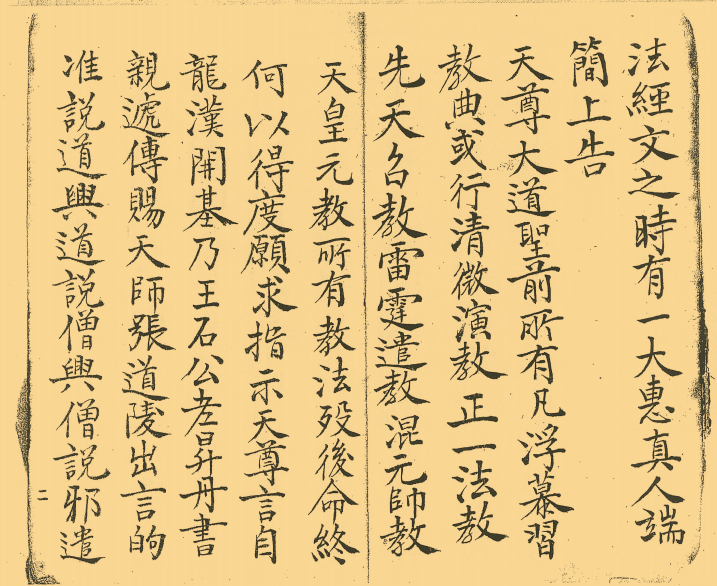 法經文之時有一大惠真人端
簡上告
天尊大道聖前所有凡浮慕習
教典或行清微演教正一法教
先天名教雷霆遣教混元師教
天皇元教所有教法歿後命終
何以得度願求指示天尊言自
龍漢開基乃王石公孝昇丹書
親遞傳賜天師張道陵出言的
准說道興道說僧興僧說邪遣
二